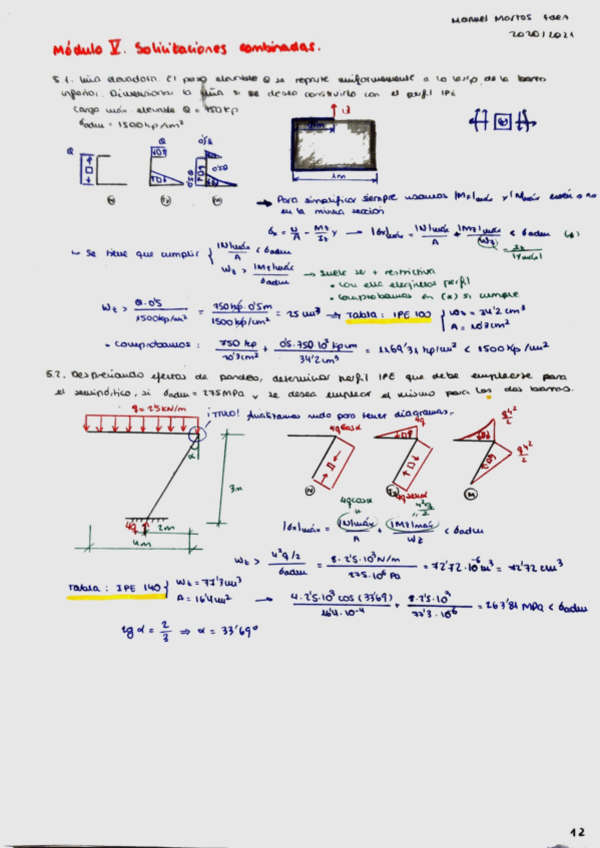 Manuel Martos Faen
2020/2021
Módulo V. Solicitaciones combinadas.
5.1. Uña elevadora. El peso elevable Q se reparte uniformemente a lo largo de la barra
inferior. Dimensionar la uña si se desea construirla con el perfil IPE
Carga máx. elevable Q = 750 kp
σadm = 1500 kp/cm²
1m
Q Q 0'5Q
0'5Q
N M
→ Para simplificar siempre usamos |Mz|máx y |N|máx estén o no
en la misma sección
σx = N/A - Mz/Iz y → |σx|máx = |N|máx/A + |Mz|máx/Wz < σadm (*)
Se tiene que cumplir { |N|máx/A < σadm
Wz > |Mz|máx/σadm → suele ser + restrictiva
• con ella elegimos perfil
• comprobamos en (*) si cumple
Wz > Q·0'5/1500kp/cm² = 750kp·0'5m/1500kp/cm² = 25 cm³ → Tabla: IPE 100 { Wz = 34'2 cm³
A = 10'3 cm²
• Comprobamos: 750 kp/10'3cm² + 0'5·750·10² kp·cm/34'2 cm³ = 1169'31 kp/cm² < 1500 kp/cm²
5.2. Despreciando efectos de pandeo, determinar perfil IPE que debe emplearse para
el semipórtico, si σadm = 275 MPa y se desea emplear el mismo para las dos barras.
q = 2'5 KN/m
¡TRUCO! Analizamos nudo para tener diagramas.
α
3m
4q
2m
4m
4q cosα 4q 4q senα q4²/2 q4²/2
N M
|σx|máx = |N|máx/A + |Mz|máx/Wz < σadm
Wz > 4²q/2/σadm = 8·2'5·10³ N/m/275·10⁶ Pa = 72'72·10⁻⁶ m³ = 72'72 cm³
Tabla: IPE 140 { Wz = 77'3 cm³
A = 16'4 cm²
→ 4·2'5·10³ cos(33'69)/16'4·10⁻⁴ + 8·2'5·10³/77'3·10⁻⁶ = 263'81 MPa < σadm
tg α = 2/3 ⇒ α = 33'69°
12